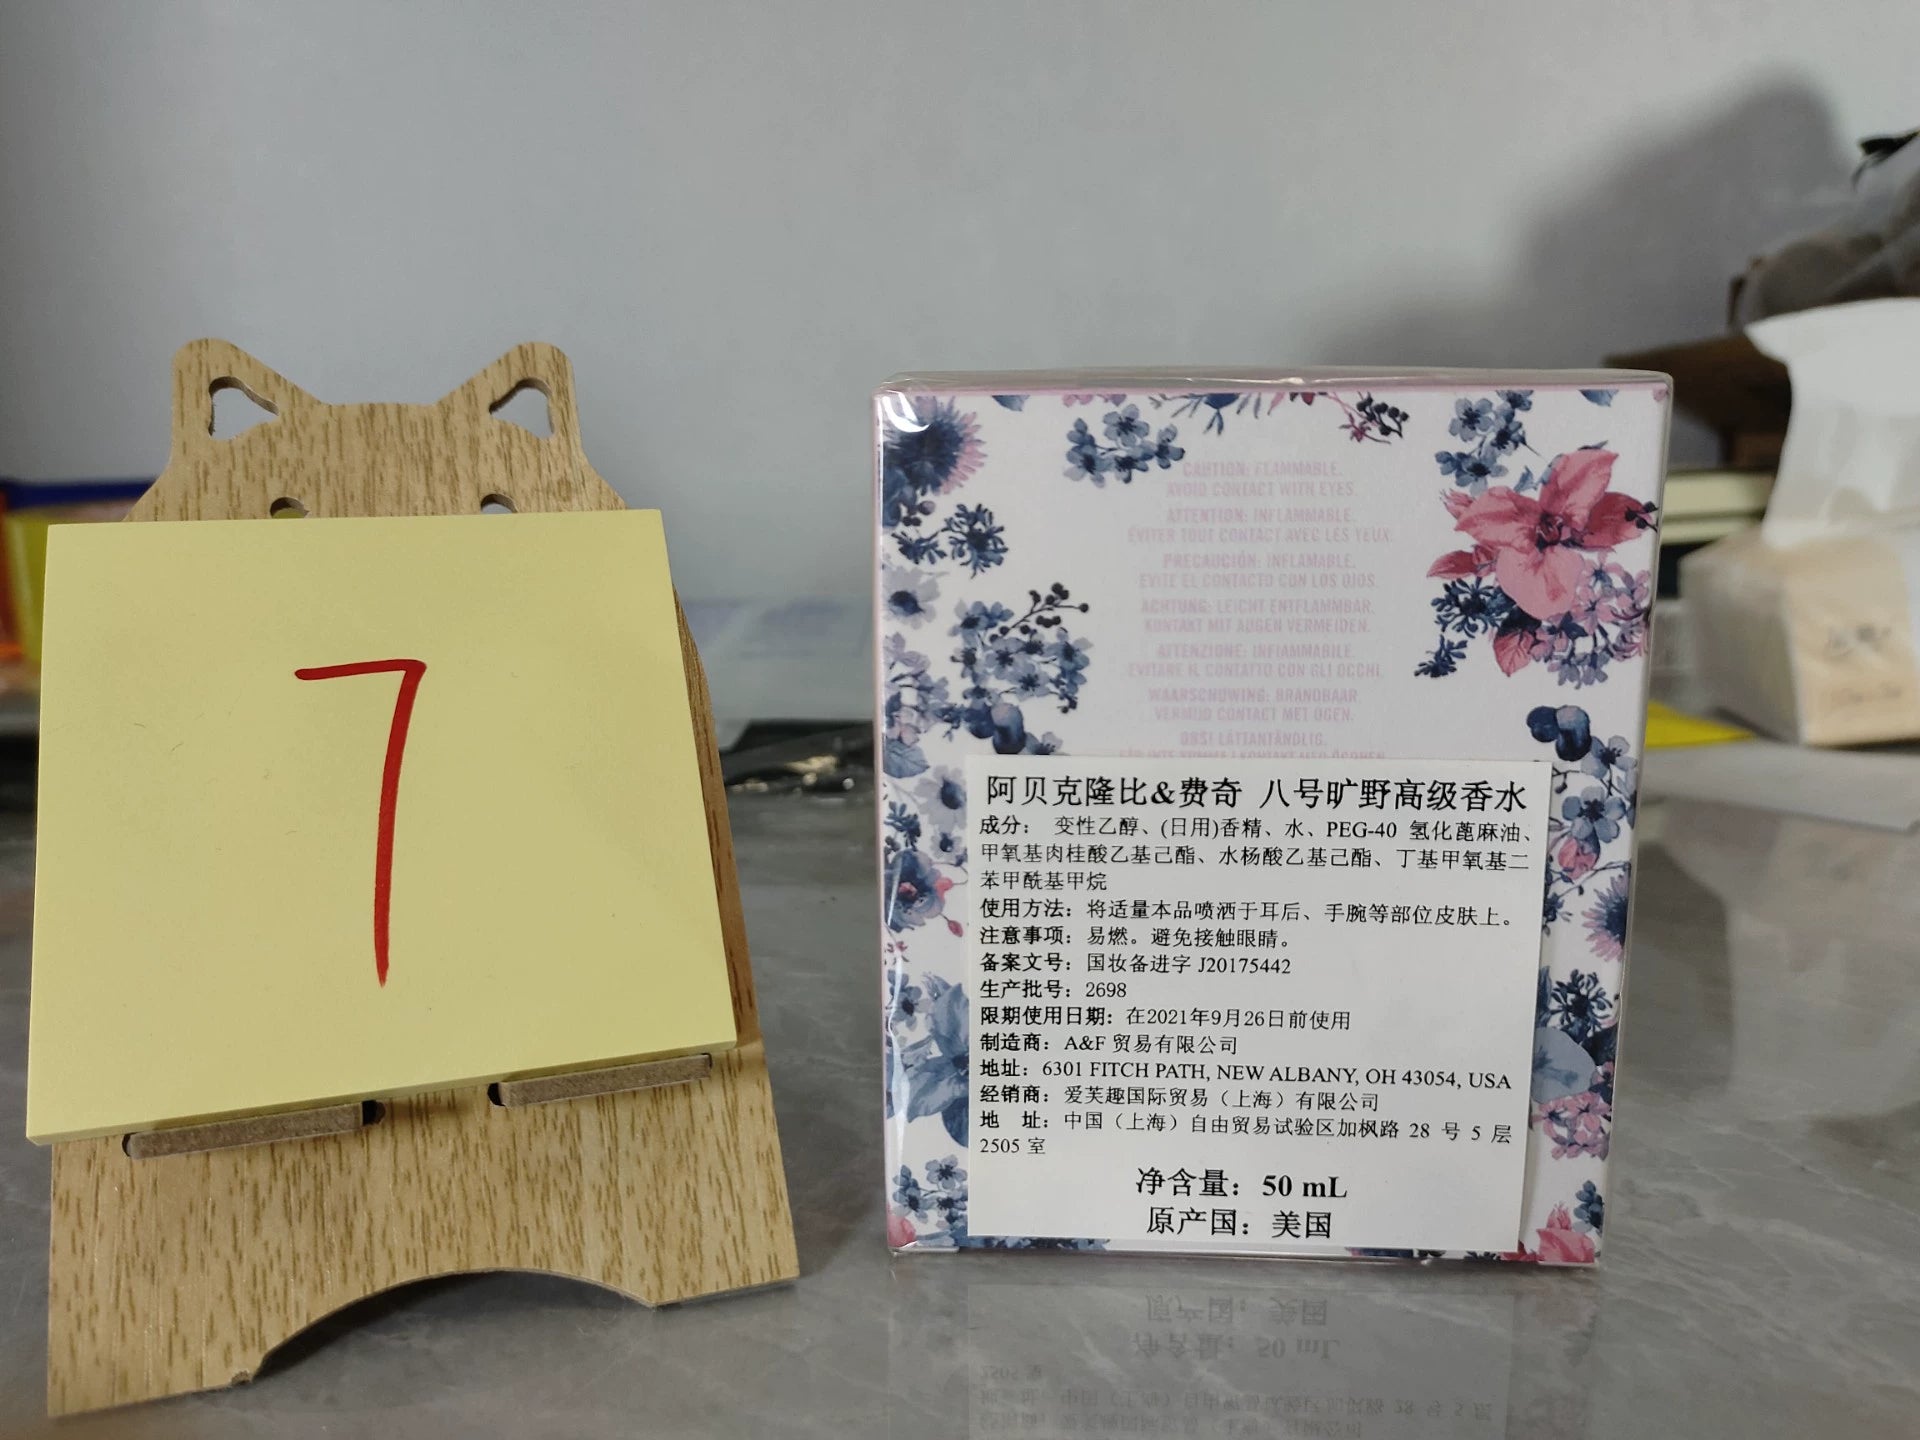 7
CAUTION: FLAMMABLE.
AVOID CONTACT WITH EYES.
ATTENTION: INFLAMMABLE.
ÉVITER TOUT CONTACT AVEC LES YEUX.
PRECAUCIÓN: INFLAMABLE.
EVITE EL CONTACTO CON LOS OJOS.
ACHTUNG: LEICHT ENTFLAMMBAR.
KONTAKT MIT AUGEN VERMEIDEN.
ATTENZIONE: INFIAMMABILE.
EVITARE IL CONTATTO CON GLI OCCHI.
WAARSCHUWING: BRANDBAAR.
VERMIJD CONTACT MET OGEN.
OBS! LÄTTANTÄNDLIG.
阿贝克隆比&费奇 八号旷野高级香水
成分： 变性乙醇、(日用)香精、水、PEG-40 氢化蓖麻油、
甲氧基肉桂酸乙基己酯、水杨酸乙基己酯、丁基甲氧基二
苯甲酰基甲烷
使用方法：将适量本品喷洒于耳后、手腕等部位皮肤上。
注意事项：易燃。避免接触眼睛。
备案文号：国妆备进字 J20175442
生产批号：2698
限期使用日期：在2021年9月26日前使用
制造商：A&F 贸易有限公司
地址：6301 FITCH PATH, NEW ALBANY, OH 43054, USA
经销商：爱芙趣国际贸易（上海）有限公司
地 址：中国（上海）自由贸易试验区加枫路 28 号 5 层
2505 室
净含量：50 mL
原产国：美国